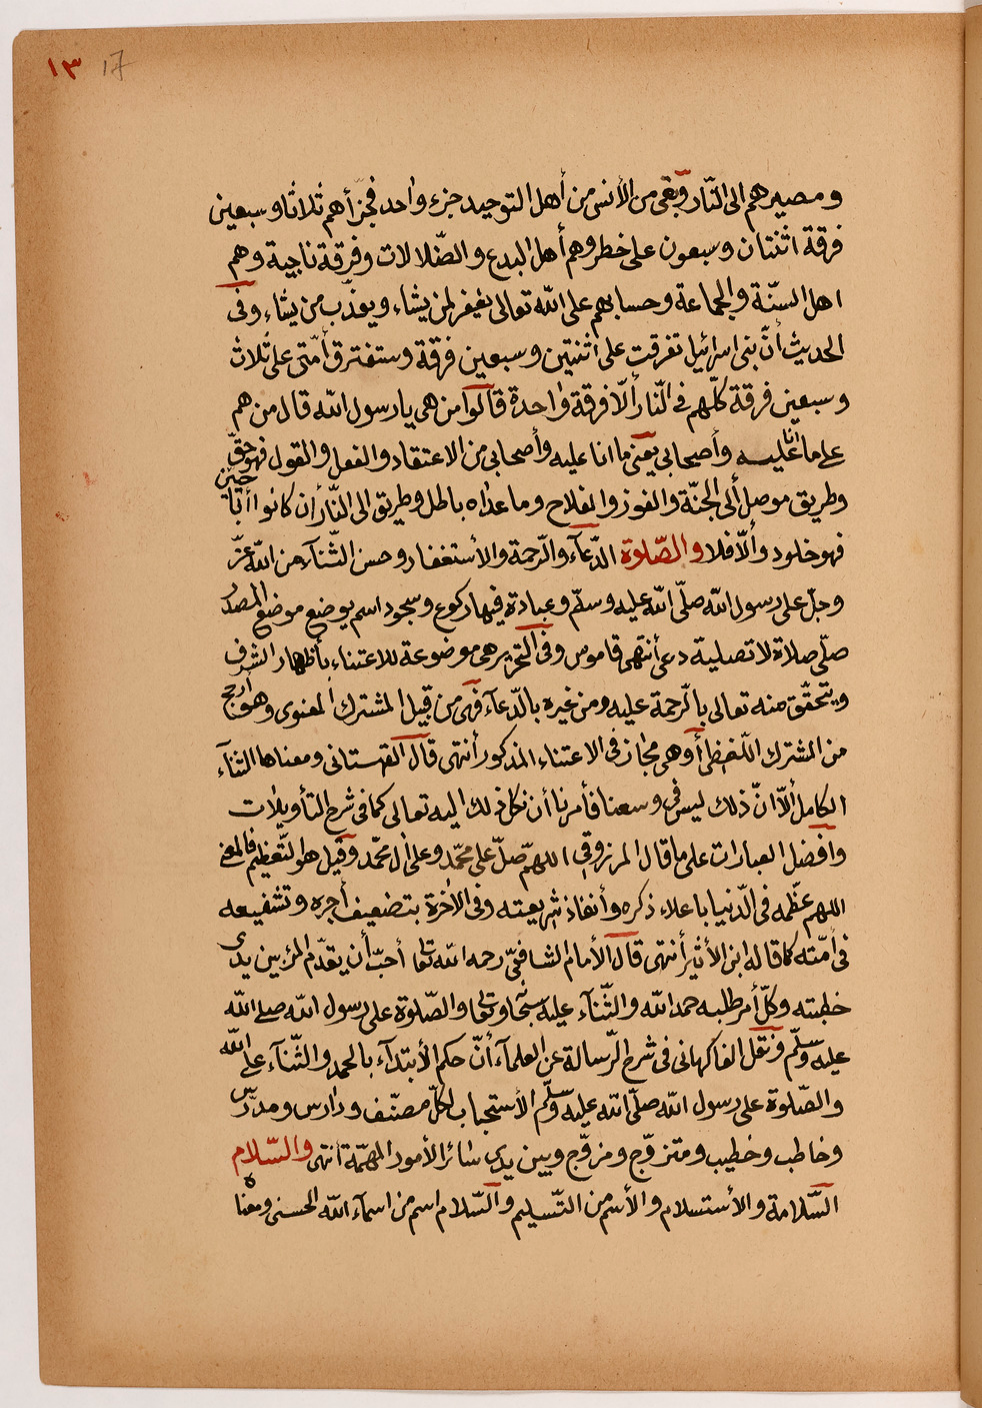 ١٣ 17
ومصيرهم الى النّار وبقى من الأنس من أهل التوحيد جزء واحد فجزّأهم ثلاثا وسبعين
فرقة اثنتان وسبعون على خطر وهم أهل البدع والضّلالات وفرقة ناجية وهم
اهل السنّة والجماعة وحسابهم على اللّه تعالى يغفر لمن يشاء ويعذّب من يشاء وفى
الحديث أنّ بنى اسرائيل تفرقت على اثنتين وسبعين فرقة وستفترق أمّتى على ثلاث
وسبعين فرقة كلّهم فى النّار ألّا فرقة واحدة قالوا من هى يا رسول اللّه قال من هم
على ما انا عليه وأصحابى يعنى ما انا عليه وأصحابى من الاعتقاد والفعل والقول فهو حقّ
وطريق موصل ألى الجنّة والفوز والفلاح وما عداه باطل وطريق الى النّار أن كانوا
فهو خلود وألّا فلا والصّلوة الدّعآء والرّحمة والأستغفار وحسن الثّنآء من اللّه عزّ
وجلّ على رسول اللّه صلّى اللّه عليه وسلّم وعبادة فيها ركوع وسجود اسم يوضع موضع المصدر
صلّى صلاة لا تصلية دعى أنتهى قاموس وفى التحرير هى موضوعة للاعتناء بأظهار الشرف
ويتحقّق منه تعالى بالرّحمة عليه ومن غيره بالدّعآء فهى من قبيل المشترك المعنوى وهو ارجح
من المشترك اللّفظى أو هى مجاز فى الاعتناء المذكور أنتهى قال القهستانى ومعناها الثنآء
الكامل ألّا انّ ذلك ليس فى وسعنا فأمرنا أن نكل ذلك اليه تعالى كما فى شرح التأويلات
وافضل العبارات على ما قال المرزوقى اللهمّ صلّ على محمّد وعلى ال محمّد وقيل هو التّعظيم فالمعنى
اللهم عظّمه فى الدّنيا باعلاء ذكره وأنفاذ شريعته وفى الأخرة بتضعيف أجره وتشفيعه
فى أمّته كما قاله ابن الأثير أنتهى قال الأمام الشافعىّ رحمه اللّه تعا أحبّ أن يقدّم المرء بين يدى
خطبته وكلّ أمر طلبه حمد اللّه والثّنآء عليه سبحا وتعا والصّلوة على رسول اللّه صلى اللّه
عليه وسلّم ونقل الفاكهانى فى شرح الرّسالة عن العلمآء أنّ حكم الأبتدآء بالحمد والثّنآء على اللّه
والصّلوة على رسول اللّه صلّى اللّه عليه وسلّم الأستحباب لكلّ مصنّف ودارس ومدرّس
وخاطب وخطيب ومتزوّج ومزوّج وبين يدى سائر الأمور المهمّة انتهى والسّلام
السّلامة والأستسلام والأسم من التّسليم والسّلام اسم من اسمآء اللّه الحسنى ومعناه